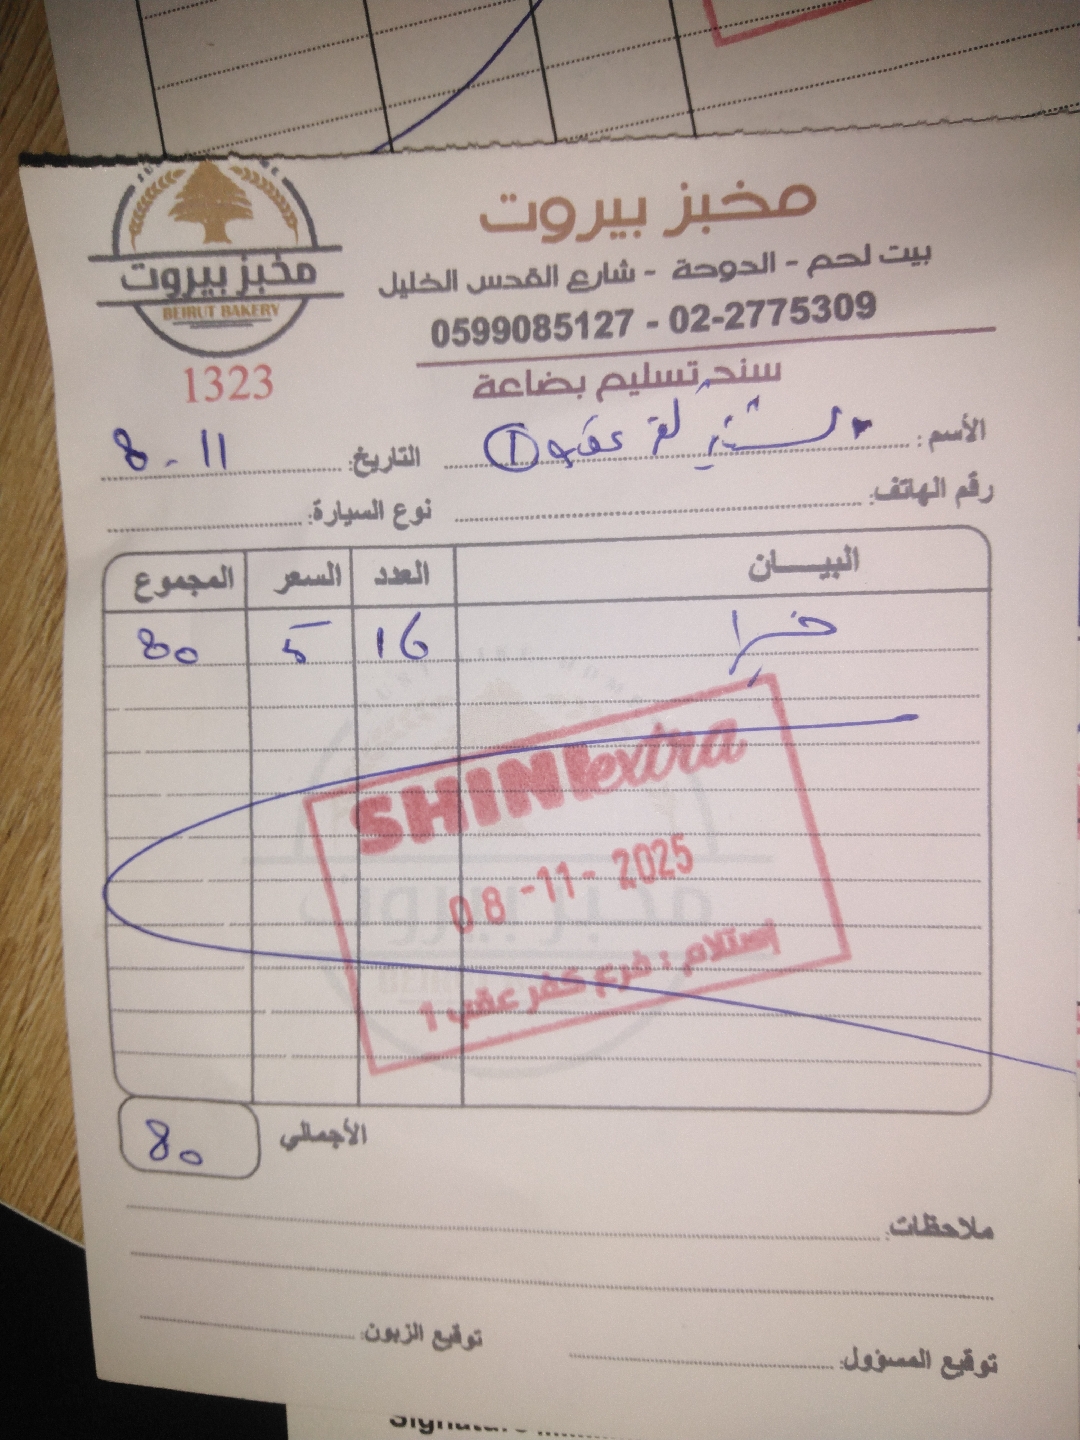 مخبز بيروت
BEIRUT BAKERY
مخبز بيروت
بيت لحم - الدوحة - شارع القدس الخليل
0599085127 - 02-2775309
1323
سند تسليم بضاعة
الأسم: الشني كفر عقب 1
التاريخ: 8-11
رقم الهاتف:
نوع السيارة:
البيـــان العدد السعر المجموع
16 5 80
SHINI extra
08-11-2025
إستلام : فرع كفر عقب 1
الأجمالي 80
ملاحظات:
توقيع المسؤول: توقيع الزبون:
Signature